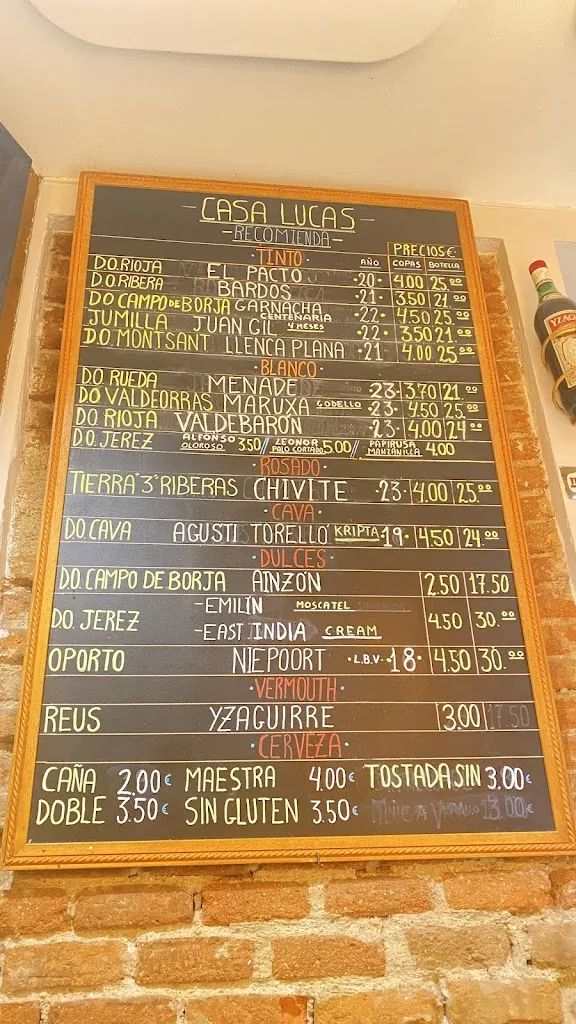 CASA LUCAS
-RECOMIENDA-
·TINTO· AÑO PRECIOS€ COPAS BOTELLA
D.O.RIOJA EL PACTO ·20· 4.00 25.00
D.O.RIBERA BARDOS ·21· 3.50 21.00
DO CAMPO DE BORJA GARNACHA CENTENARIA ·22· 4.50 25.00
JUMILLA JUAN GIL 4 MESES ·22· 3.50 21.00
D.O. MONTSANT LLENCA PLANA ·21 4.00 25.00
·BLANCO·
D.O. RUEDA MENADE ·23· 3.70 21.00
DO VALDEORRAS MARUXA GODELLO ·23· 4.50 25.00
DO RIOJA VALDEBARÓN ·23· 4.00 24.00
D.O. JEREZ ALFONSO OLOROSO 3.50 / LEONOR PALO CORTADO 5.00 / PAPIRUSA MANZANILLA 4.00
·ROSADO·
TIERRA "3" RIBERAS CHIVITE ·23· 4.00 25.00
·CAVA·
DO.CAVA AGUSTI TORELLÓ KRIPTA ·19· 4.50 24.00
·DULCES·
D.O. CAMPO DE BORJA AINZÓN 2.50 17.50
DO. JEREZ -EMILÍN MOSCATEL 4.50 30.00
-EAST INDIA CREAM
OPORTO NIEPOORT ·L.B.V·18· 4.50 30.00
·VERMOUTH·
REUS YZAGUIRRE 3.00 17.50
·CERVEZA·
CAÑA 2.00€ MAESTRA 4.00€ TOSTADA SIN 3.00€
DOBLE 3.50€ SIN GLUTEN 3.50€ 13.00€
YZAG